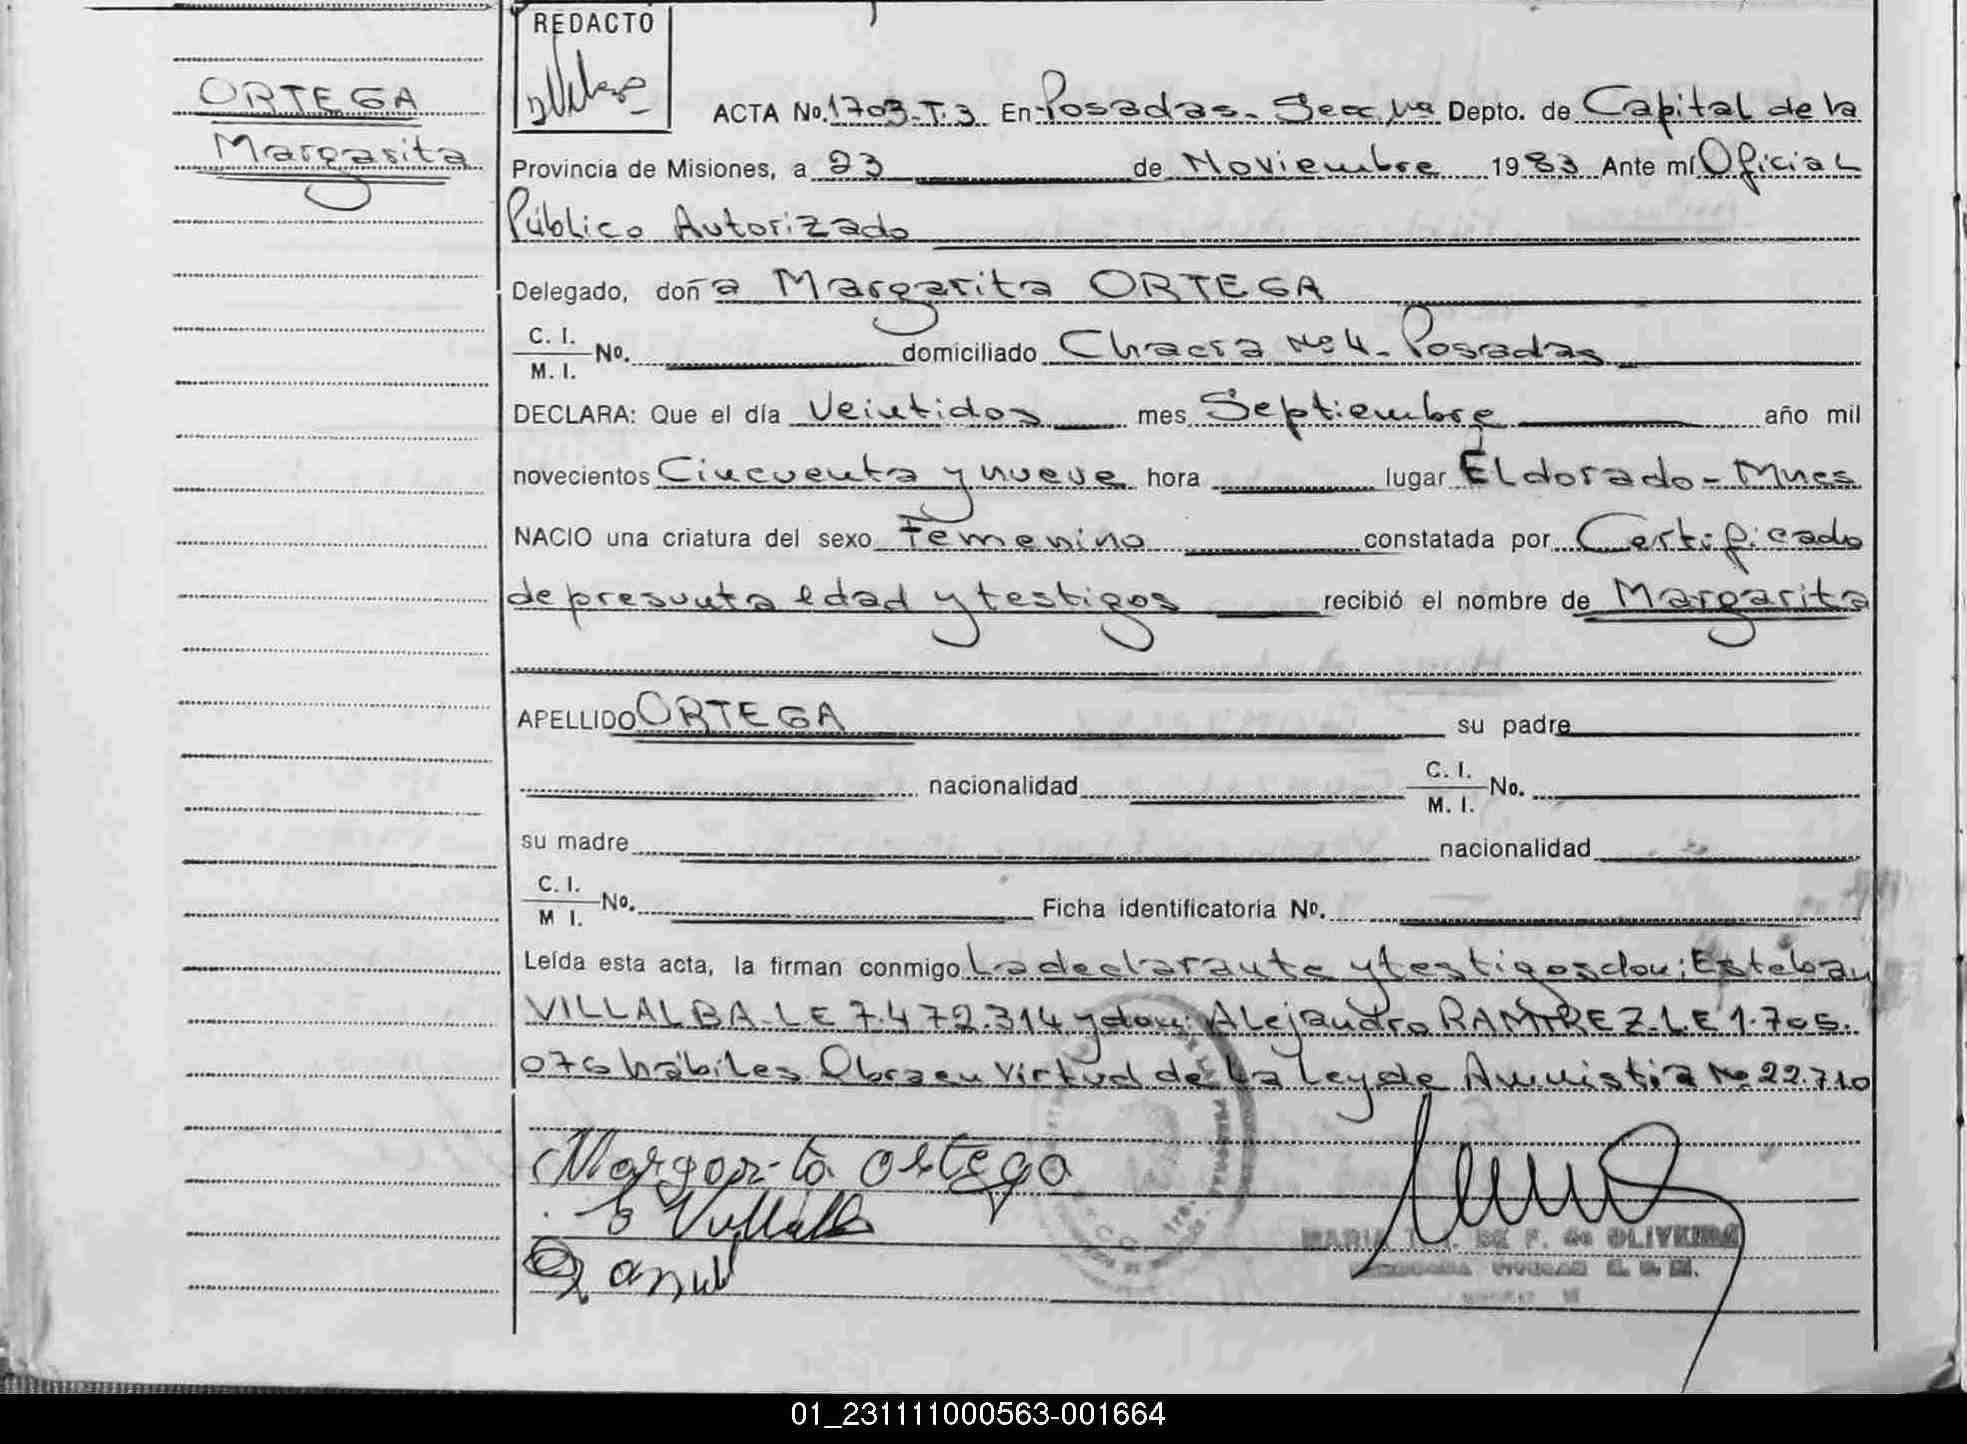 REDACTO
ORTEGA
Margarita
ACTA No. 1703-T.3 En Posadas- Secc 1ra Depto. de Capital de la
Provincia de Misiones, a 23 de Noviembre 1983 Ante mí Oficial
Público Autorizado
Delegado, doña Margarita ORTEGA
C. I.
M. I. No. domiciliado Chacra Nº 4- Posadas
DECLARA: Que el día Veintidos mes Septiembre año mil
novecientos Cincuenta y nueve hora lugar Eldorado - Mnes
NACIO una criatura del sexo Femenino constatada por Certificado
de presunta edad y testigos recibió el nombre de Margarita
APELLIDO ORTEGA su padre
nacionalidad C. I.
M. I. No.
su madre nacionalidad
C. I.
M I. No. Ficha identificatoria No.
Leída esta acta, la firman conmigo La declarante y testigos don: Esteban
VILLALBA-LE 7.472.314 y don: Alejandro RAMIREZ-LE 1.705.
076 hábiles Obra en Virtud de La Ley de Amnistía Nº 22.710
Margarita Ortega
E Villalba
MARIA DE F. de OLIVEIRA
01_231111000563-001664